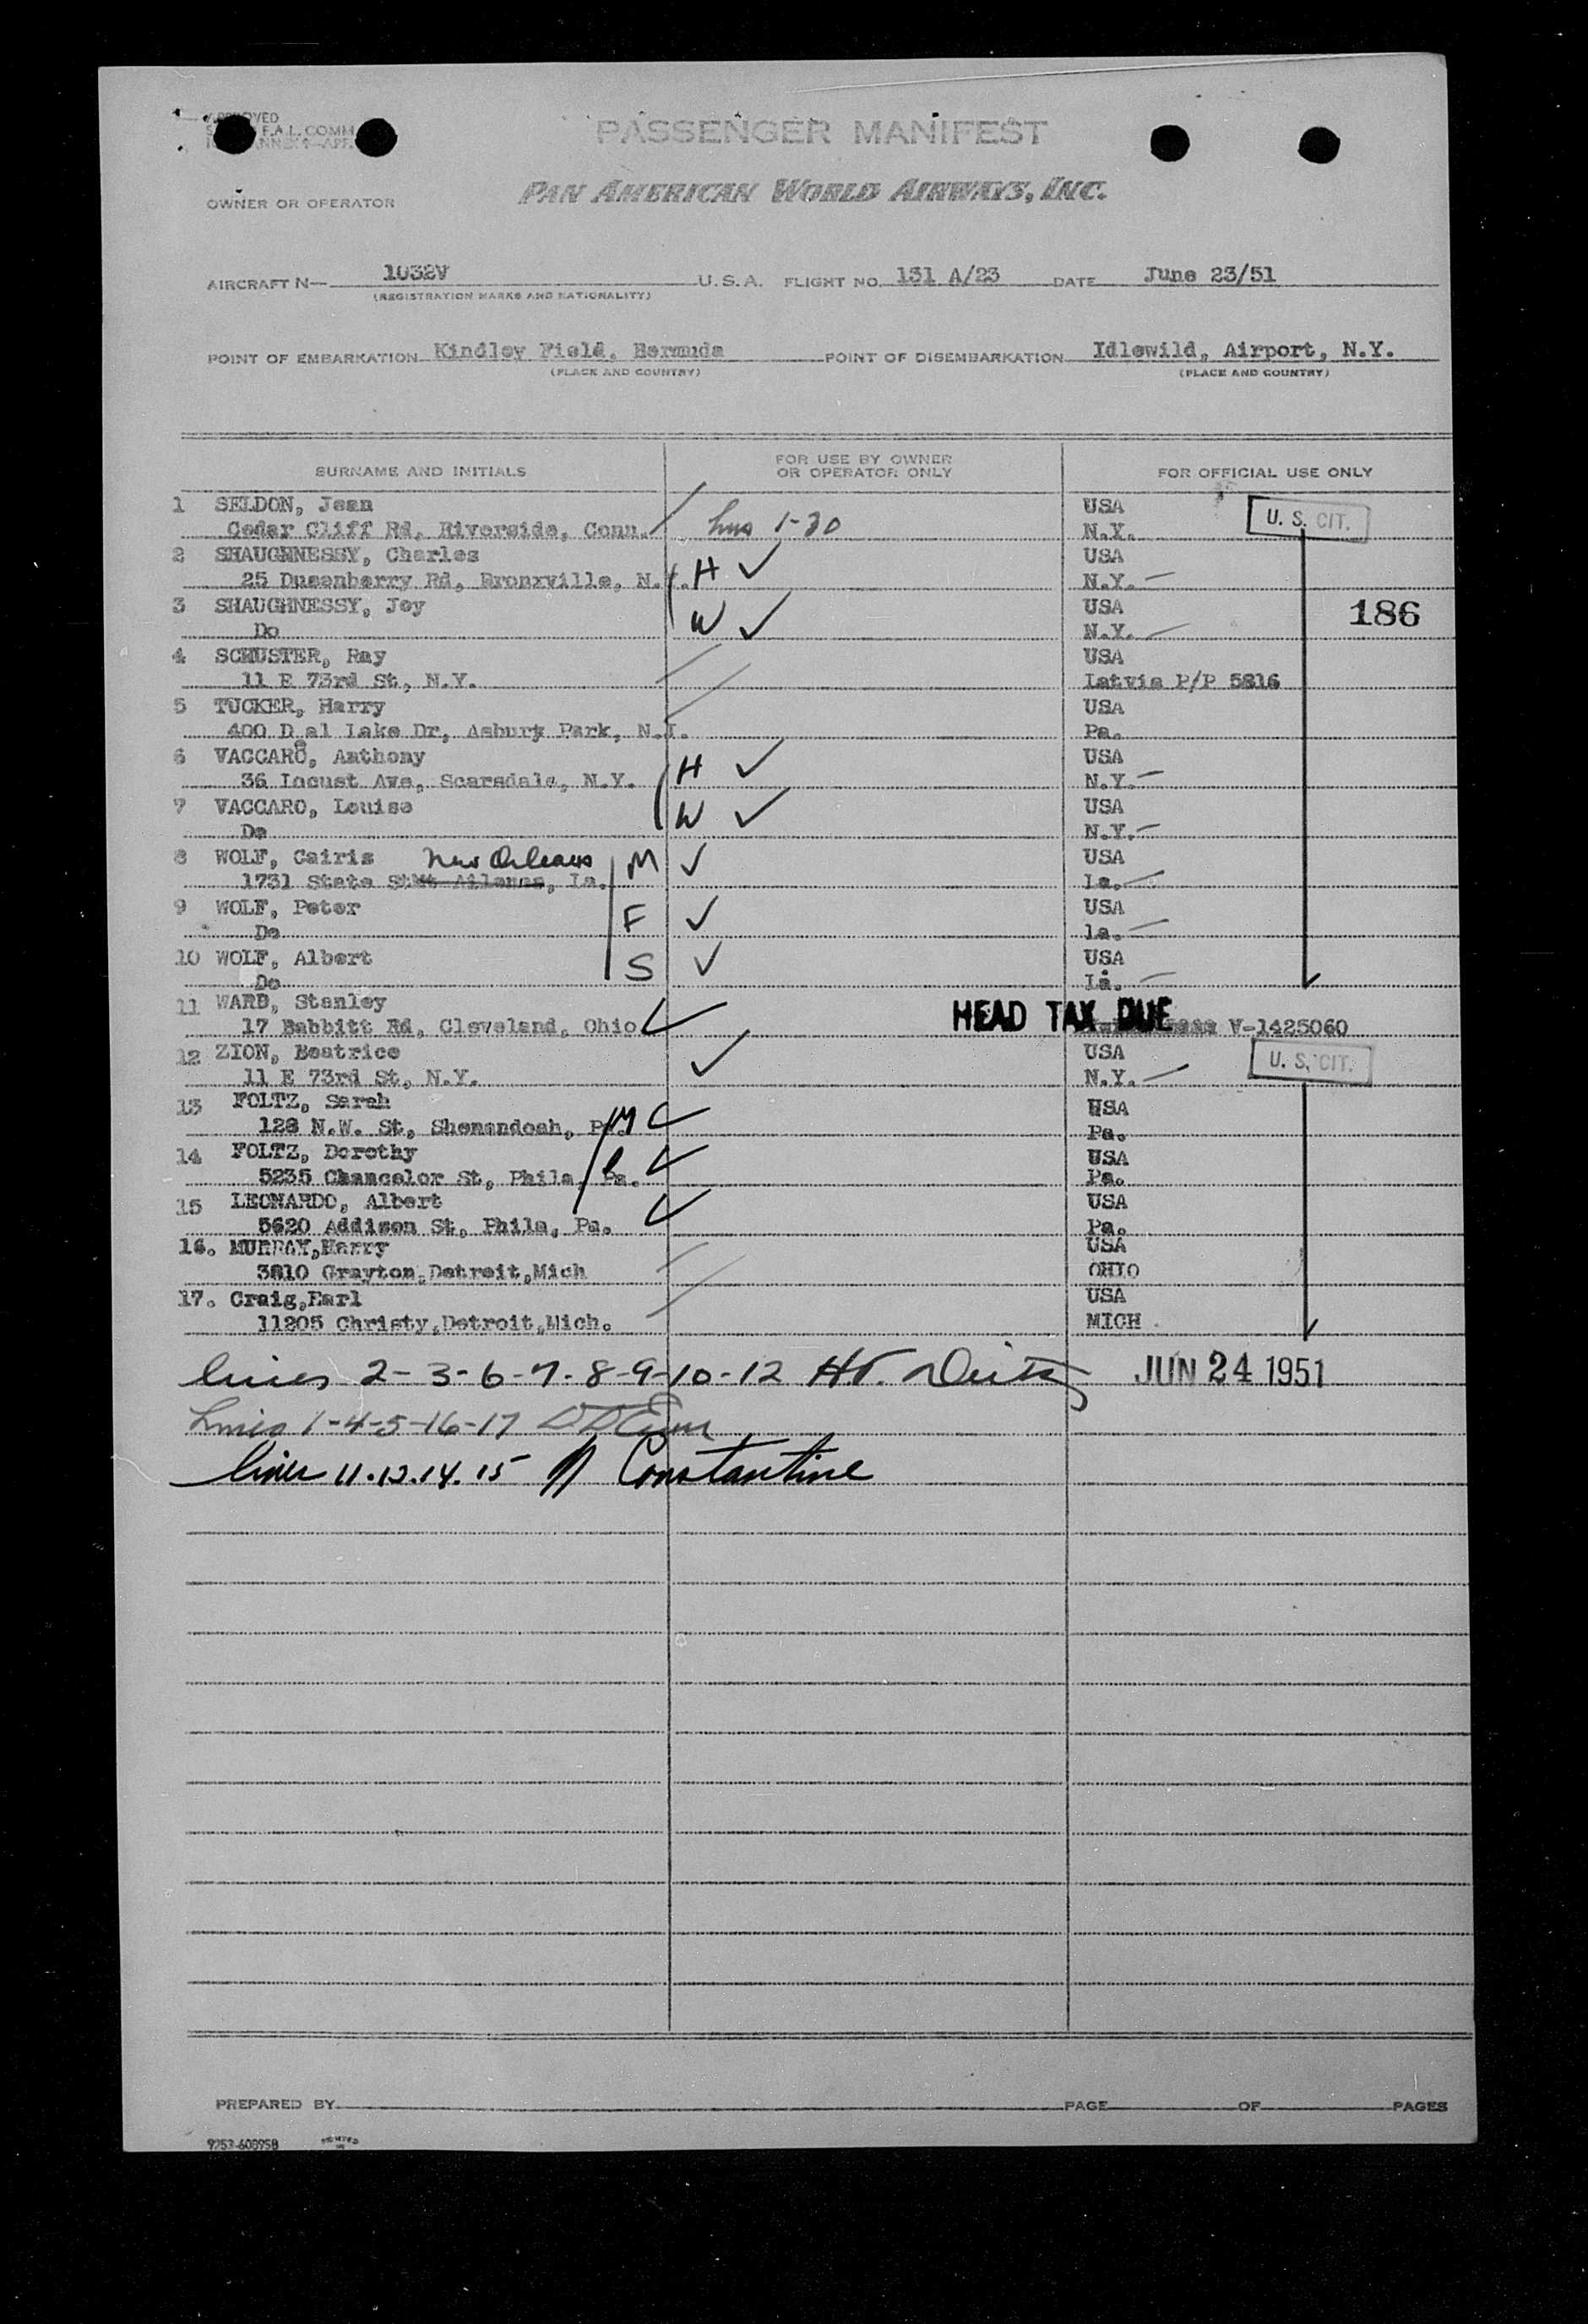 PASSENGER MANIFEST
PAN AMERICAN WORLD AIRWAYS, INC.
OWNER OR OPERATOR
AIRCRAFT N— 1032V U.S.A. FLIGHT NO. 131 A/23 DATE June 23/51
(REGISTRATION MARKS AND NATIONALITY)
POINT OF EMBARKATION Kindley Field, Bermuda POINT OF DISEMBARKATION Idlewild, Airport, N.Y.
(PLACE AND COUNTRY) (PLACE AND COUNTRY)
SURNAME AND INITIALS FOR USE BY OWNER OR OPERATOR ONLY FOR OFFICIAL USE ONLY
1 SELDON, Jean USA U. S. CIT.
Cedar Cliff Rd, Riverside, Conn. 1-30 N.Y.
2 SHAUGHNESSY, Charles USA
25 Dusenberry Rd, Bronxville, N.Y. H ✓ N.Y. —
3 SHAUGHNESSY, Joy USA 186
Do W ✓ N.Y. —
4 SCHUSTER, Ray USA
11 E 73rd St, N.Y. Latvia P/P 5816
5 TUCKER, Harry USA
400 Deal Lake Dr, Asbury Park, N.J. Pa.
6 VACCARO, Anthony USA
36 Locust Ave, Scarsdale, N.Y. H ✓ N.Y. —
7 VACCARO, Louise USA
Do W ✓ N.Y. —
8 WOLF, Cairis New Orleans M ✓ USA
1731 State St, La. La. —
9 WOLF, Peter F ✓ USA
Do la. —
10 WOLF, Albert S ✓ USA
Do La. —
11 WARD, Stanley HEAD TAX DUE
17 Babbitt Rd, Cleveland, Ohio ✓ V-1425060
12 ZION, Beatrice ✓ USA U. S. CIT.
11 E 73rd St, N.Y. N.Y. —
13 FOLTZ, Sarah USA
128 N.W. St, Shenandoah, Pa. M ✓ Pa.
14 FOLTZ, Dorothy ✓ USA
5235 Chancelor St, Phila, Pa. Pa.
15 LEONARDO, Albert ✓ USA
5620 Addison St, Phila, Pa. Pa.
16. MURRAY,Harry USA
3810 Grayton,Detroit,Mich OHIO
17. Craig,Earl USA
11205 Christy,Detroit,Mich. MICH
lines 2-3-6-7-8-9-10-12 JUN 24 1951
Lines 1-4-5-16-17
lines 11.13.14.15 Constantine
PREPARED BY PAGE OF PAGES
9753-608958